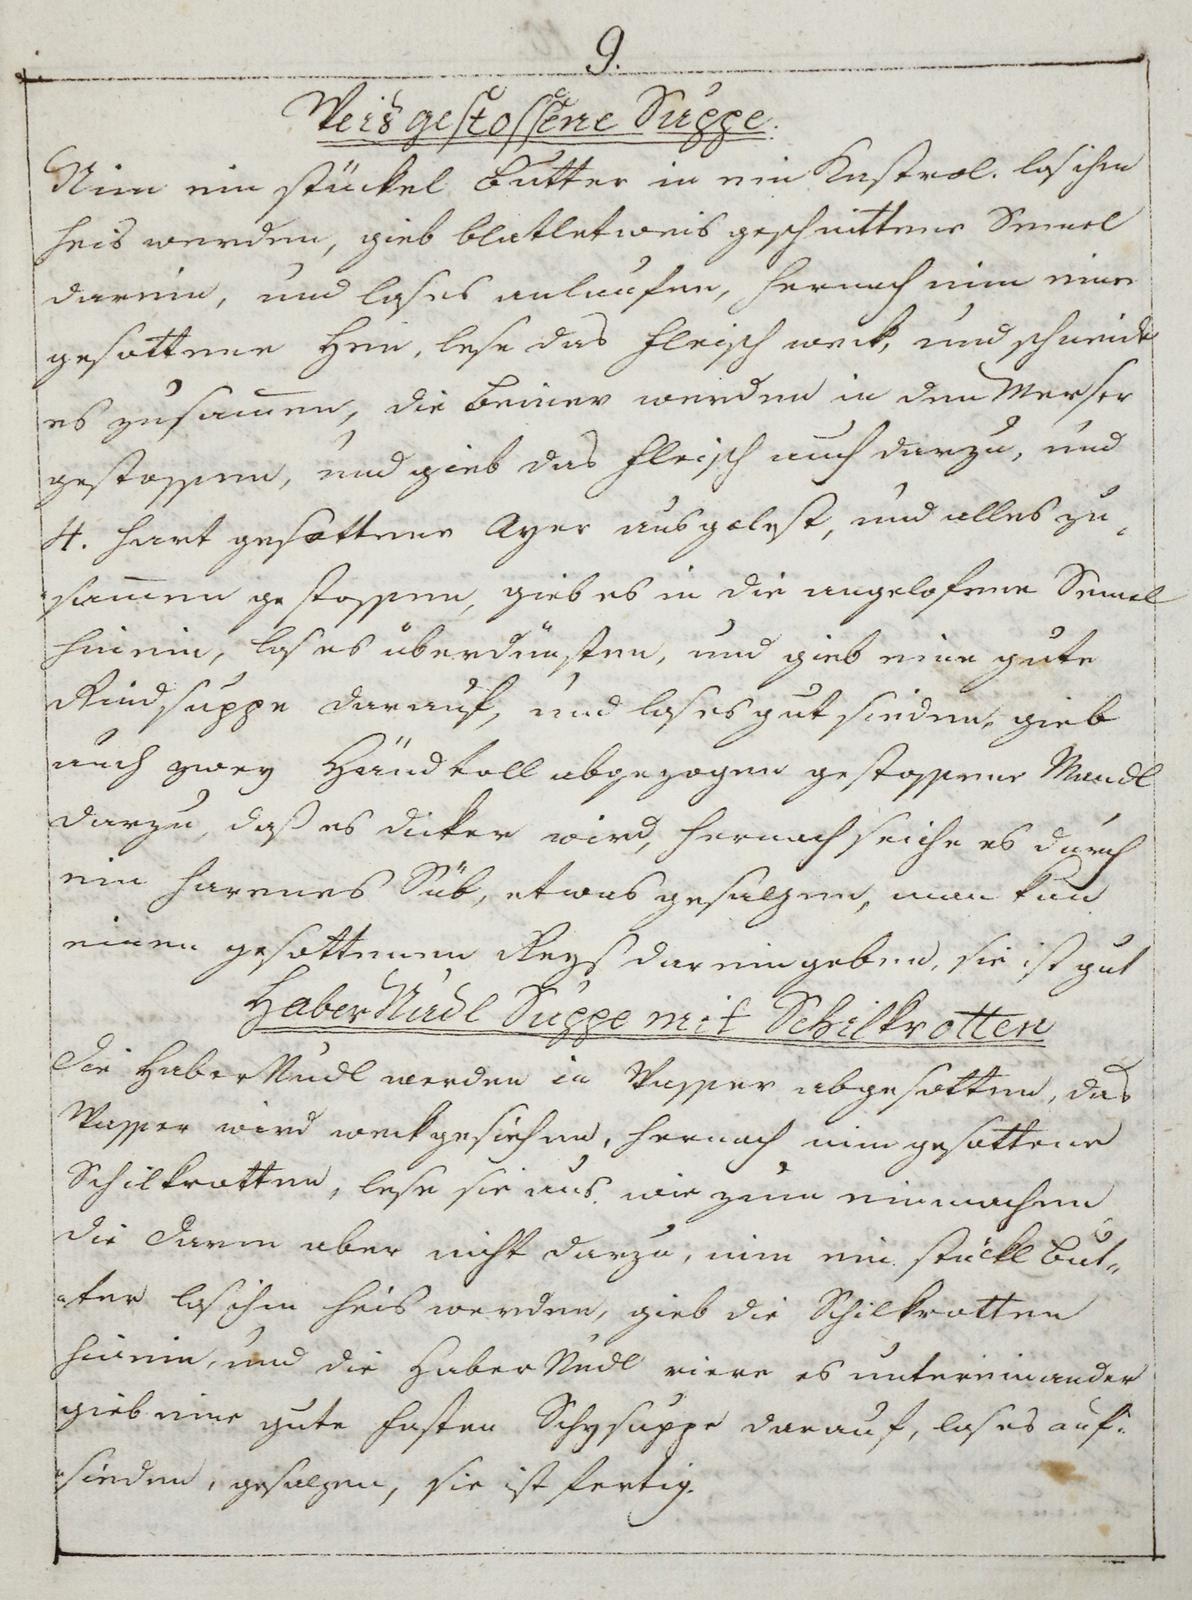 9.
Weis gestossene Suppe.
Nim ein stückel Butter in ein Kastrol. las ihm
heis werden, gieb blatletweis geschnittene Semel
darein, und las es anlaufen, hernach nim eine
gesottene Hen, lese das fleisch weck, und schneide
es zusamen, die Beiner werden in den Merser
gestossen, und gieb das fleisch auch darzu, und
4. hart gesottene Ayer ausgelest, und alles zu„
samen gestossen, gieb es in die angelofene Semel
hinein, las es überdünsten, und gieb eine gute
Rindsuppe darauf, und las es gut sieden, gieb
auch zwey Händ voll abgezogen gestossene Mandl
darzu, daß es dicker wird, hernach seiche es durch
ein harenes Süb, etwas gesalzen, man kan
einen gesottenen Reys darein geben, sie ist gut
Haber Nudl Suppe mit Schilkrotten
Die Haber Nudl werden in Wasser abgesotten, das
Wasser wird weckgesiehen, hernach nim gesottene
Schilkrotten, lese sie aus. wie zum einmachen
die Darm aber nicht darzu, nim ein stückl But„
„ter las ihm heis werden, gieb die Schilkrotten
hinein, und die Haber Nudl riere es untereinander
gieb eine gute fasten Schysuppe darauf, las es auf„
„sieden, gesalzen, sie ist fertig.